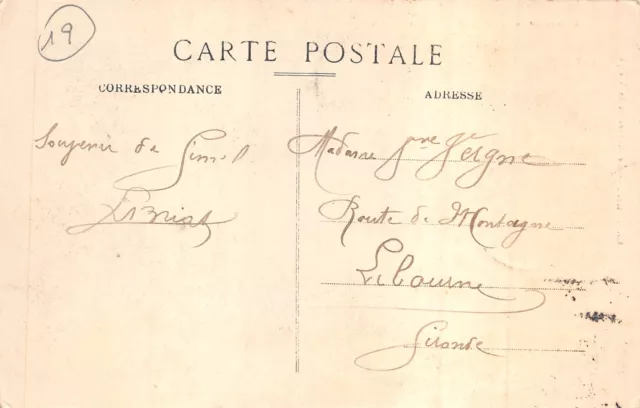 19
CARTE POSTALE
CORRESPONDANCE
ADRESSE
Souvenir de Gimel
Madame
Route de Montagne
Libourne
Gironde